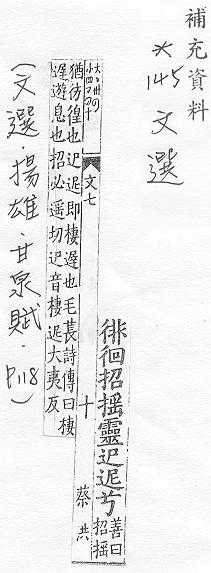 補充資料
*145 文選
徘徊招摇靈迉迡兮
善曰
招摇
文七
十
蔡洪
猶彷徨也迉迡即棲遲也毛萇詩傳曰棲
遲遊息也招必遥切迉音棲迡大夷反
(文選·揚雄·甘泉賦·P.118)